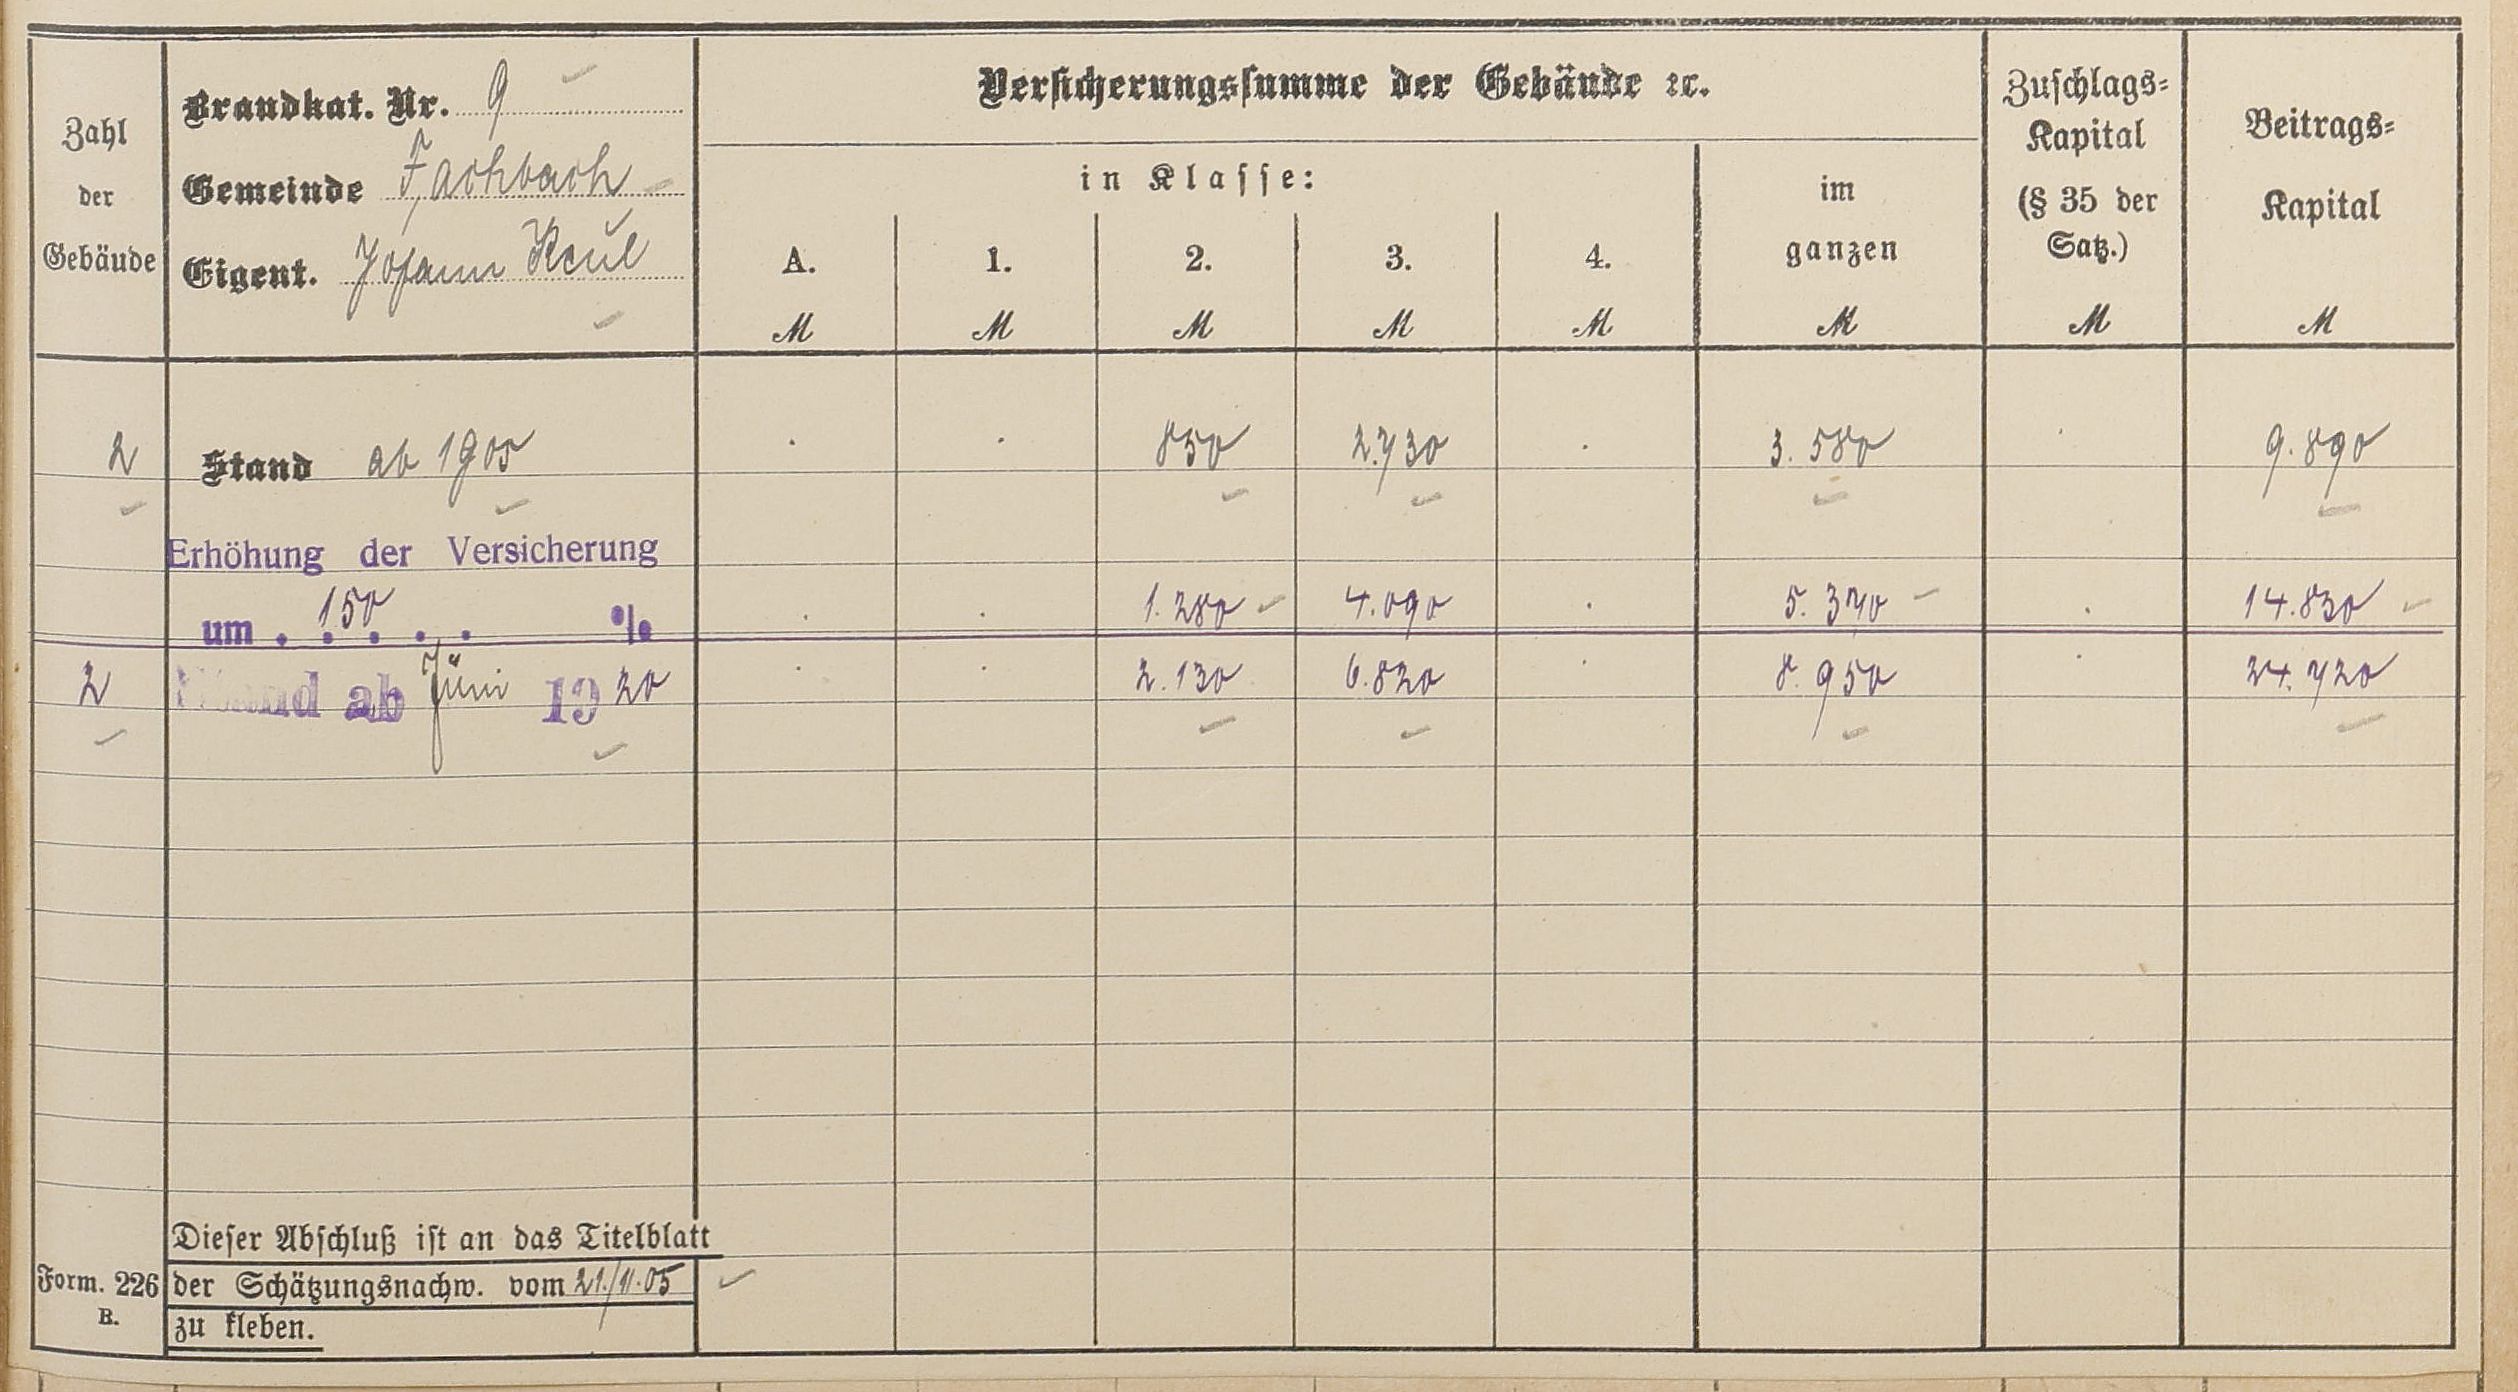 Zahl
der
Gebäude
Brandkat. Nr. 9
Gemeinde Fachbach
Eigent. Johann Keul
Versicherungssumme der Gebäude ꝛc.
in Klasse:
A. 1. 2. 3. 4.
M M M M M
im
ganzen
M
Zuschlags-
Kapital
(§ 35 der
Satz.)
M
Beitrags-
Kapital
M
2 Stand ab 1905 . . 850 2.730 . 3.580 . 9.890
Erhöhung der Versicherung
um . 150 . . . . % . . 1.280 4.090 . 5.370 . 14.830
2 Stand ab Juni 1920 . . 2.130 6.820 . 8.950 . 24.720
Form. 226
B.
Dieser Abschluß ist an das Titelblatt
der Schätzungsnachw. vom 21./11.05
zu kleben.